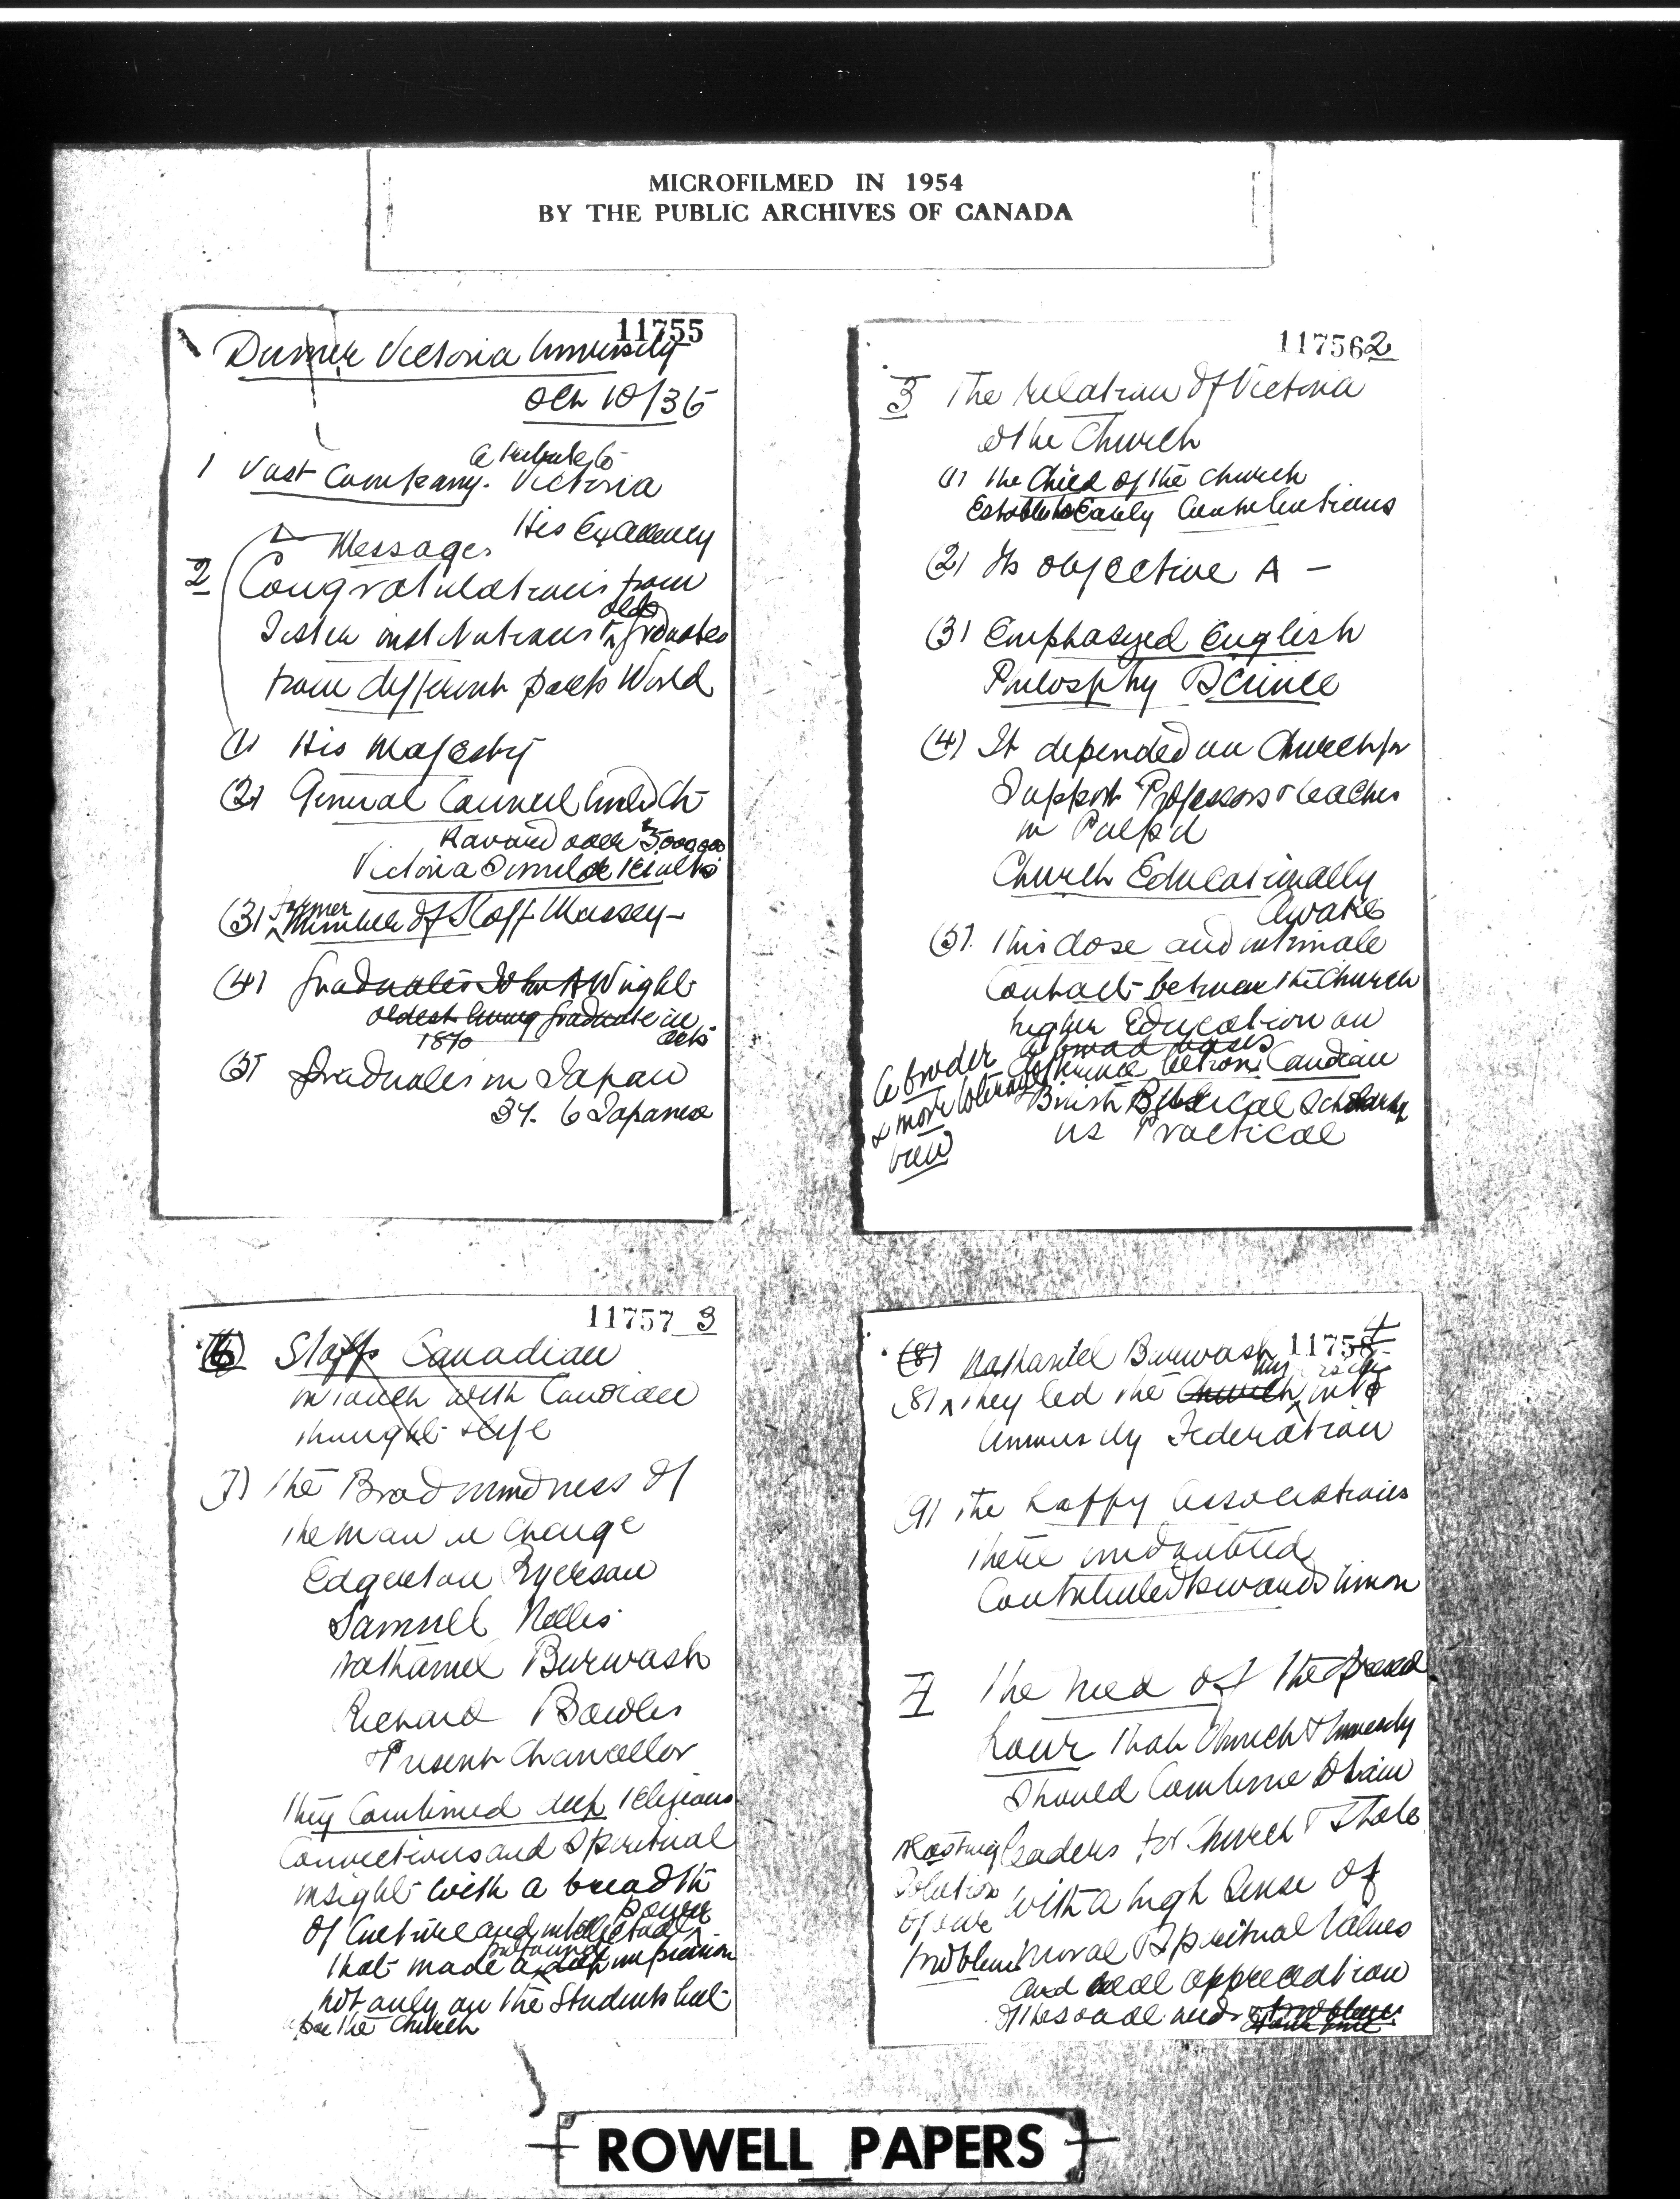 MICROFILMED IN 1954
BY THE PUBLIC ARCHIVES OF CANADA
11755
Dinner Victoria University
Oct 10/36
1 Vast Company. a tribute to Victoria
His Excellency
Messages
2 Congratulations from
Sister institutions & graduates
from different parts World
(1) His Majesty
(2) General Council United Ch
Havard over $5000,000
Victoria Similar results
(3) Former Member of Staff Massey-
(4) Graduates John A Wright
oldest living graduate in
1870 Arts
(5) Graduates in Japan
34. 6 Japanese
11756 2
3 The Relation of Victoria
to the Church
(1) The Child of the Church
Early Contributions
(2) Its objective A -
(3) Emphasyed English
Philosphy Science
(4) It depended on Church for
Support Professors & teaches
in Pulpit
Church Educationally
Awake
(5) This close and intimate
Contact between the Church
higher Education on
a broad basis
a broder
& more tolerant
view
Canadian
British Biblical Scholarship
us Practical
11757 3
(6) Staff Canadian
in touch with Canadian
thought & life
(7) The Broadmindness of
the man in Charge
Edgerton Ryerson
Samuel Nelles
Nathaniel Burwash
Richard Bowles
& Present Chancellor
They Combined deep religious
Convictions and Spiritual
insight with a breadth
of Culture and intellectual power
that made a profound deep impression
not only on the Students but
on the Church
11758 4
(8) Nathaniel Burwash
(8) They led the Church into
University Federation
(9) The happy associations
there undoubted
Contributed towards Union
4 The need of the present
hour that Church & University
Should Combine to train
leaders for Church & State
with a high Sense of
Moral & Spiritual Values
and real appreciation
of the social needs & problems
lasting
Solution
of our
problems
ROWELL PAPERS